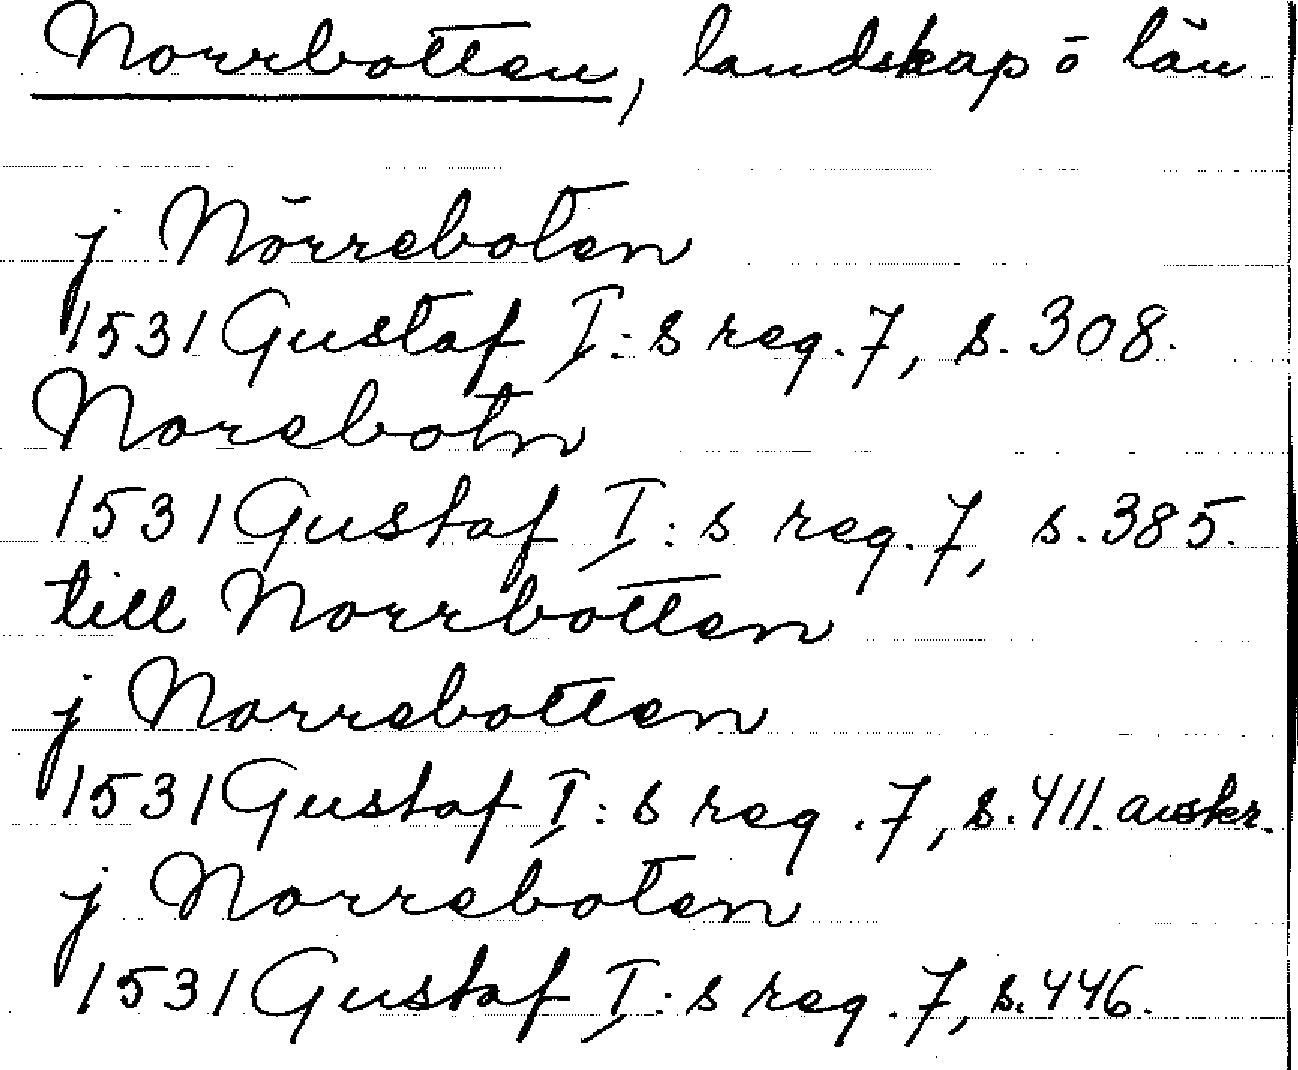 Norrbotten, landskap ō län
j Nörreboten
1531 Gustaf I:s reg. 7, s. 308.
Norebotn
1531 Gustaf I:s reg. 7, s. 385.
till Norrbotten
j Norrebotten
1531 Gustaf I:s reg. 7, s. 411. avskr.
j Norreboten
1531 Gustaf I:s reg. 7, s. 446.